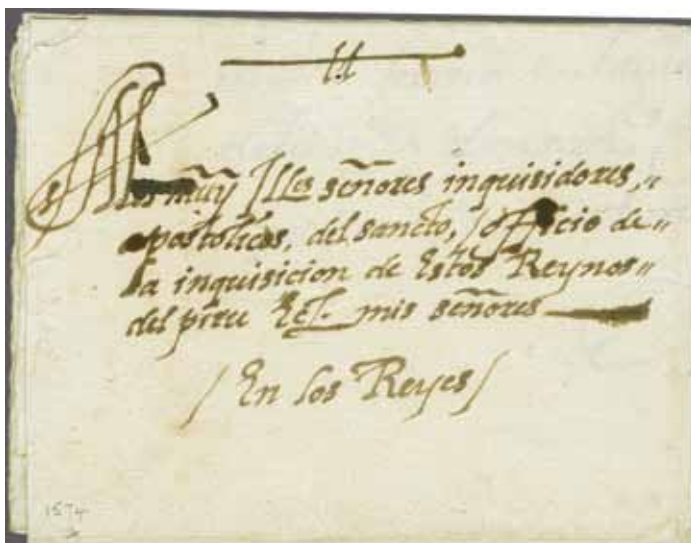 A los muy Illes señores inquisidores,"
apostolicos, del sancto, / officio de"
la inquisicion de Estos Reynos"
del piru &c. mis señores
/ En los Reyes /
1574